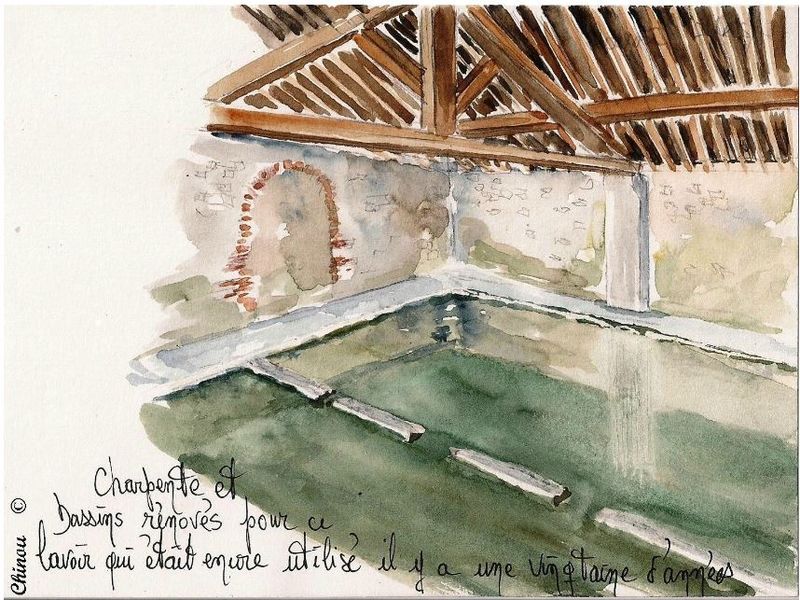 Charpente et
bassins rénovés pour ce
lavoir qui était encore utilisé il y a une vingtaine d'années
Chinou ©